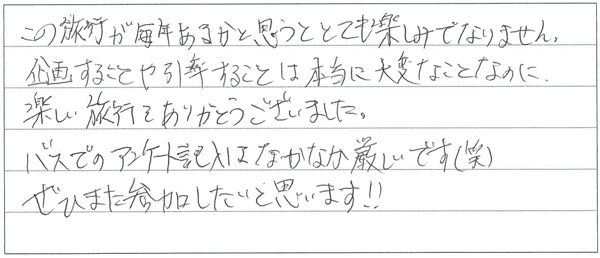 この旅行が毎年あるかと思うととても楽しみでなりません。
企画することや引率することは本当に大変なことなのに、
楽しい旅行をありがとうございました。
バスでのアンケート記入はなかなか厳しいです(笑)
ぜひまた参加したいと思います!!